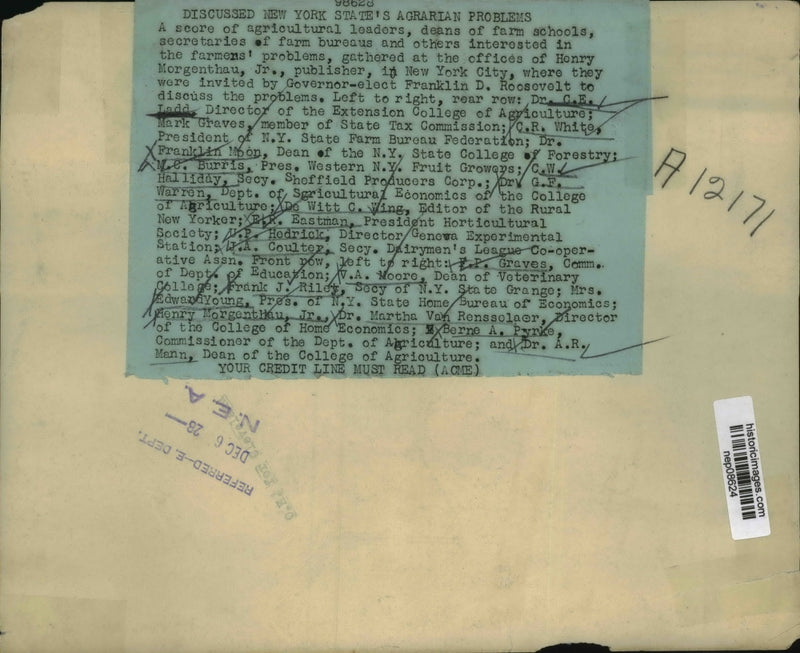 98628
DISCUSSED NEW YORK STATE'S AGRARIAN PROBLEMS
A score of agricultural leaders, deans of farm schools,
secretaries of farm bureaus and others interested in
the farmens' problems, gathered at the offices of Henry
Morgenthau, Jr., publisher, in New York City, where they
were invited by Governor-elect Franklin D. Roosevelt to
discuss the problems. Left to right, rear row: Dr. C.E.
Ladd, Director of the Extension College of Agriculture;
Mark Graves, member of State Tax Commission; C.R. White,
President of N.Y. State Farm Bureau Federation; Dr.
Franklin Moon, Dean of the N.Y. State College of Forestry;
M.C. Burris, Pres. Western N.Y. Fruit Growers; C.W.
Halliday, Secy. Sheffield Producers Corp.; Dr. G.F.
Warren, Dept. of Sgricultural Economics of the College
of Agriculture; De Witt C. Wing, Editor of the Rural
New Yorker; E.R. Eastman, President Horticultural
Society; U.P. Hedrick, Director Geneva Experimental
Station; J.A. Coulter, Secy. Dairymen's League Co-oper-
ative Assn. Front row, left to right: F.P. Graves, Comm.
of Dept. of Education; V.A. Moore, Dean of Veterinary
College; Frank J. Riley, Secy of N.Y. State Grange; Mrs.
Edward Young, Pres. of N.Y. State Home Bureau of Economics;
Henry Morgenthau, Jr., Dr. Martha Van Rensselaer, Director
of the College of Home Economics; Berne A. Pyrke,
Commissioner of the Dept. of Agriculture; and Dr. A.R.
Mann, Dean of the College of Agriculture.
YOUR CREDIT LINE MUST READ (ACME)
A12171
N.E.A.
DEC 6 28
REFERRED-E. DEPT.
historicimages.com
nep08624